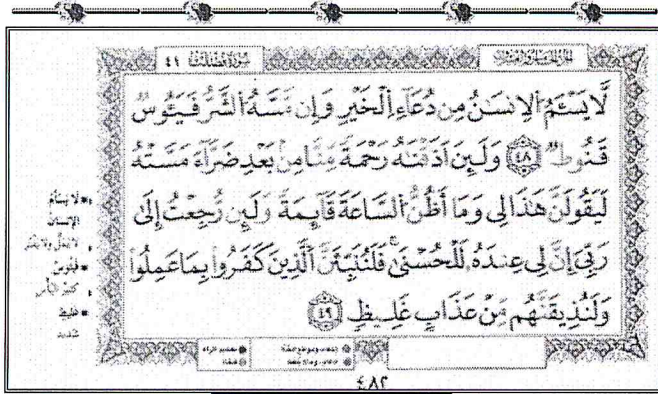 سورة فصلت ٤١
لَّا يَسْـَٔمُ ٱلْإِنسَـٰنُ مِن دُعَآءِ ٱلْخَيْرِ وَإِن مَّسَّهُ ٱلشَّرُّ فَيَـُٔوسٌ
قَنُوطٌ ٤٨ وَلَئِنْ أَذَقْنَـٰهُ رَحْمَةً مِّنَّا مِنۢ بَعْدِ ضَرَّآءَ مَسَّتْهُ
لَيَقُولَنَّ هَـٰذَا لِى وَمَآ أَظُنُّ ٱلسَّاعَةَ قَآئِمَةً وَلَئِن رُّجِعْتُ إِلَىٰ
رَبِّىٓ إِنَّ لِى عِندَهُۥ لَلْحُسْنَىٰ ۚ فَلَنُنَبِّئَنَّ ٱلَّذِينَ كَفَرُوا۟ بِمَا عَمِلُوا۟
وَلَنُذِيقَنَّهُم مِّنْ عَذَابٍ غَلِيظٍ ٤٩
لا يسأم
الإنسان
غليظ
شديد
٤٨٢